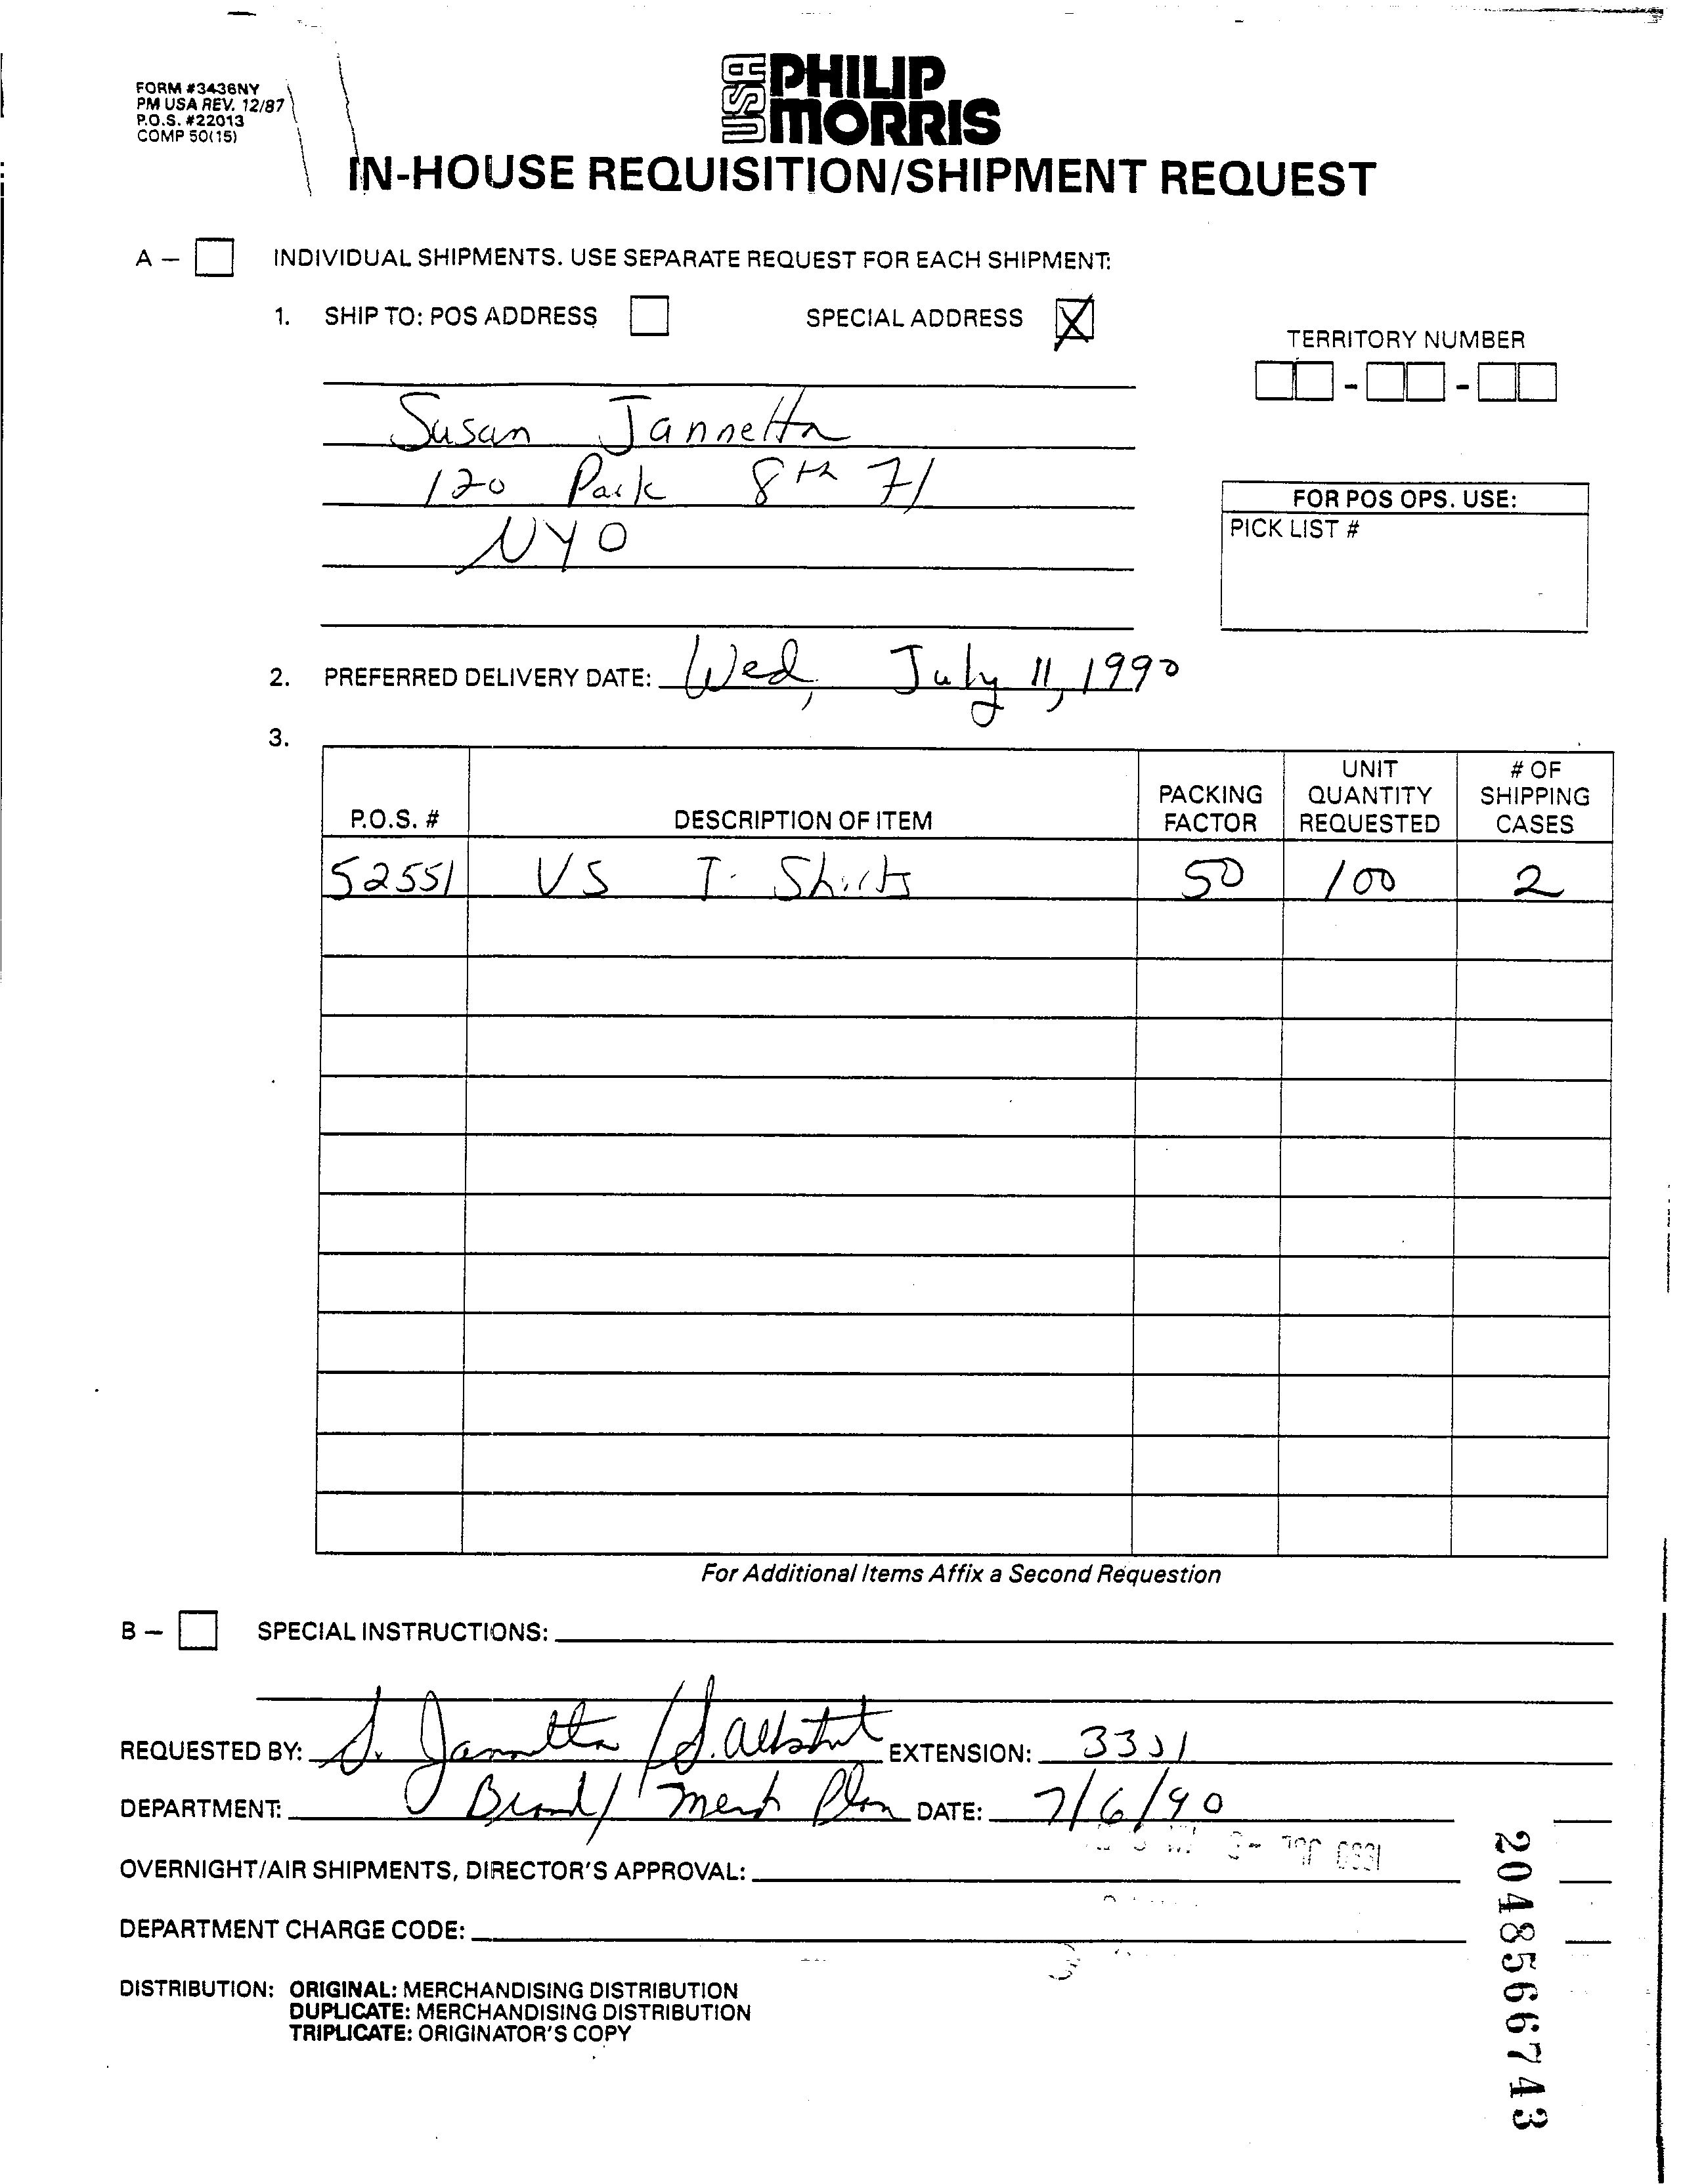 FORM #3436NY
PM USA REV. 12/87
P.O.S. #22013
COMP 50(15)
USA PHILIP
MORRIS
IN-HOUSE REQUISITION/SHIPMENT REQUEST
A – INDIVIDUAL SHIPMENTS. USE SEPARATE REQUEST FOR EACH SHIPMENT:
1. SHIP TO: POS ADDRESS SPECIAL ADDRESS X
TERRITORY NUMBER
Susan Jannetta
120 Park 8th Fl
NYO
FOR POS OPS. USE:
PICK LIST #
2. PREFERRED DELIVERY DATE: Wed, July 11, 1990
3.
P.O.S. # DESCRIPTION OF ITEM PACKING FACTOR UNIT QUANTITY REQUESTED # OF SHIPPING CASES
52551 VS T. Shirts 50 100 2
For Additional Items Affix a Second Requestion
B – SPECIAL INSTRUCTIONS:
REQUESTED BY: S. Jannetta / S. EXTENSION:
DEPARTMENT: Brand/ Merch Plan DATE: 7/6/90
OVERNIGHT/AIR SHIPMENTS, DIRECTOR'S APPROVAL:
DEPARTMENT CHARGE CODE:
DISTRIBUTION: ORIGINAL: MERCHANDISING DISTRIBUTION
DUPLICATE: MERCHANDISING DISTRIBUTION
TRIPLICATE: ORIGINATOR'S COPY
2048566743